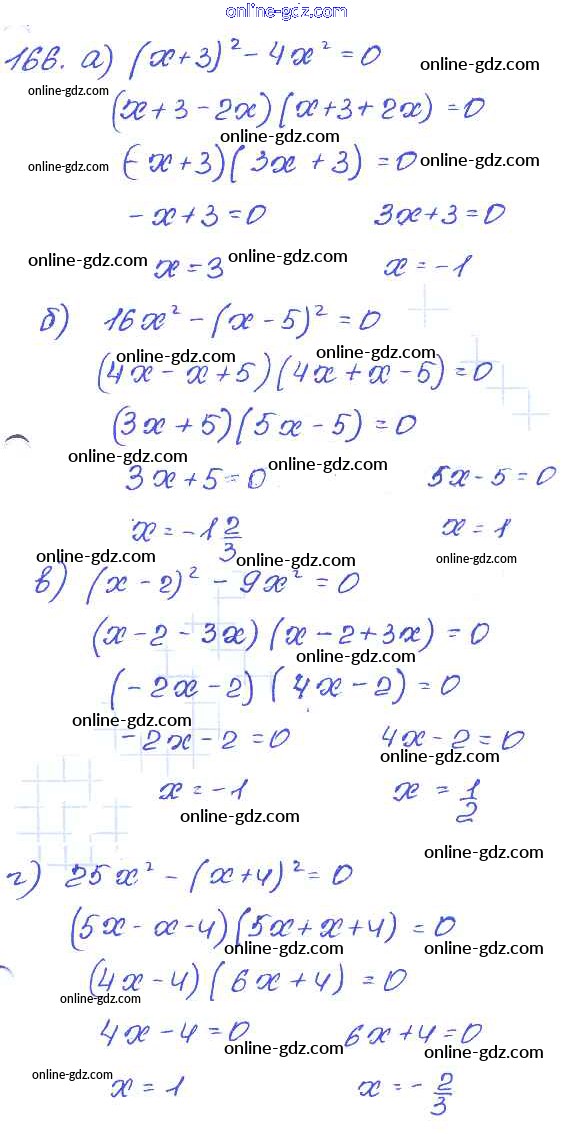 online-gdz.com
166. а) (x+3)² - 4x² = 0 online-gdz.com
online-gdz.com
(x+3-2x)(x+3+2x) = 0
online-gdz.com
online-gdz.com (-x+3)(3x+3) = 0 online-gdz.com
-x+3=0 3x+3=0
online-gdz.com x=3 online-gdz.com x=-1
б) 16x² - (x-5)² = 0
online-gdz.com online-gdz.com
(4x-x+5)(4x+x-5) = 0
(3x+5)(5x-5) = 0
online-gdz.com online-gdz.com
3x+5=0 5x-5=0
x=-1 2/3 x=1
online-gdz.com online-gdz.com online-gdz.com
в) (x-2)² - 9x² = 0
(x-2-3x)(x-2+3x) = 0
online-gdz.com
(-2x-2)(4x-2) = 0
online-gdz.com
-2x-2=0 4x-2=0
online-gdz.com
x=-1 x = 1/2
online-gdz.com
online-gdz.com
г) 25x² - (x+4)² = 0
(5x-x-4)(5x+x+4) = 0
online-gdz.com online-gdz.com
(4x-4)(6x+4) = 0
online-gdz.com
4x-4=0 6x+4=0
online-gdz.com online-gdz.com
online-gdz.com
x=1 x=-2/3